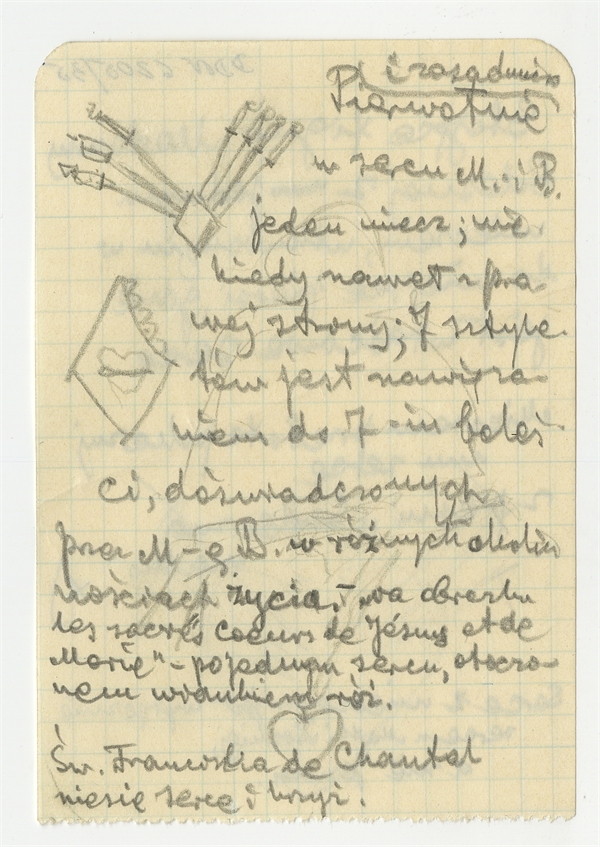 i zasadniczo
Pierwotnie
w sercu M. i B.
jeden miecz; nie
kiedy nawet z pra
wej strony; 7 sztyle
tów jest nawiąza
niem do 7-iu boleś
ci, doświadczonych
przez M-ę B. w różnych okolicz
nościach życia. – na obrazku
les sacrés coeurs de Jésus et de
Marie" – po jednym sercu, otoczo-
nem wiankiem róż.
Św. Franciszka de Chantal
niesie serce i krzyż.